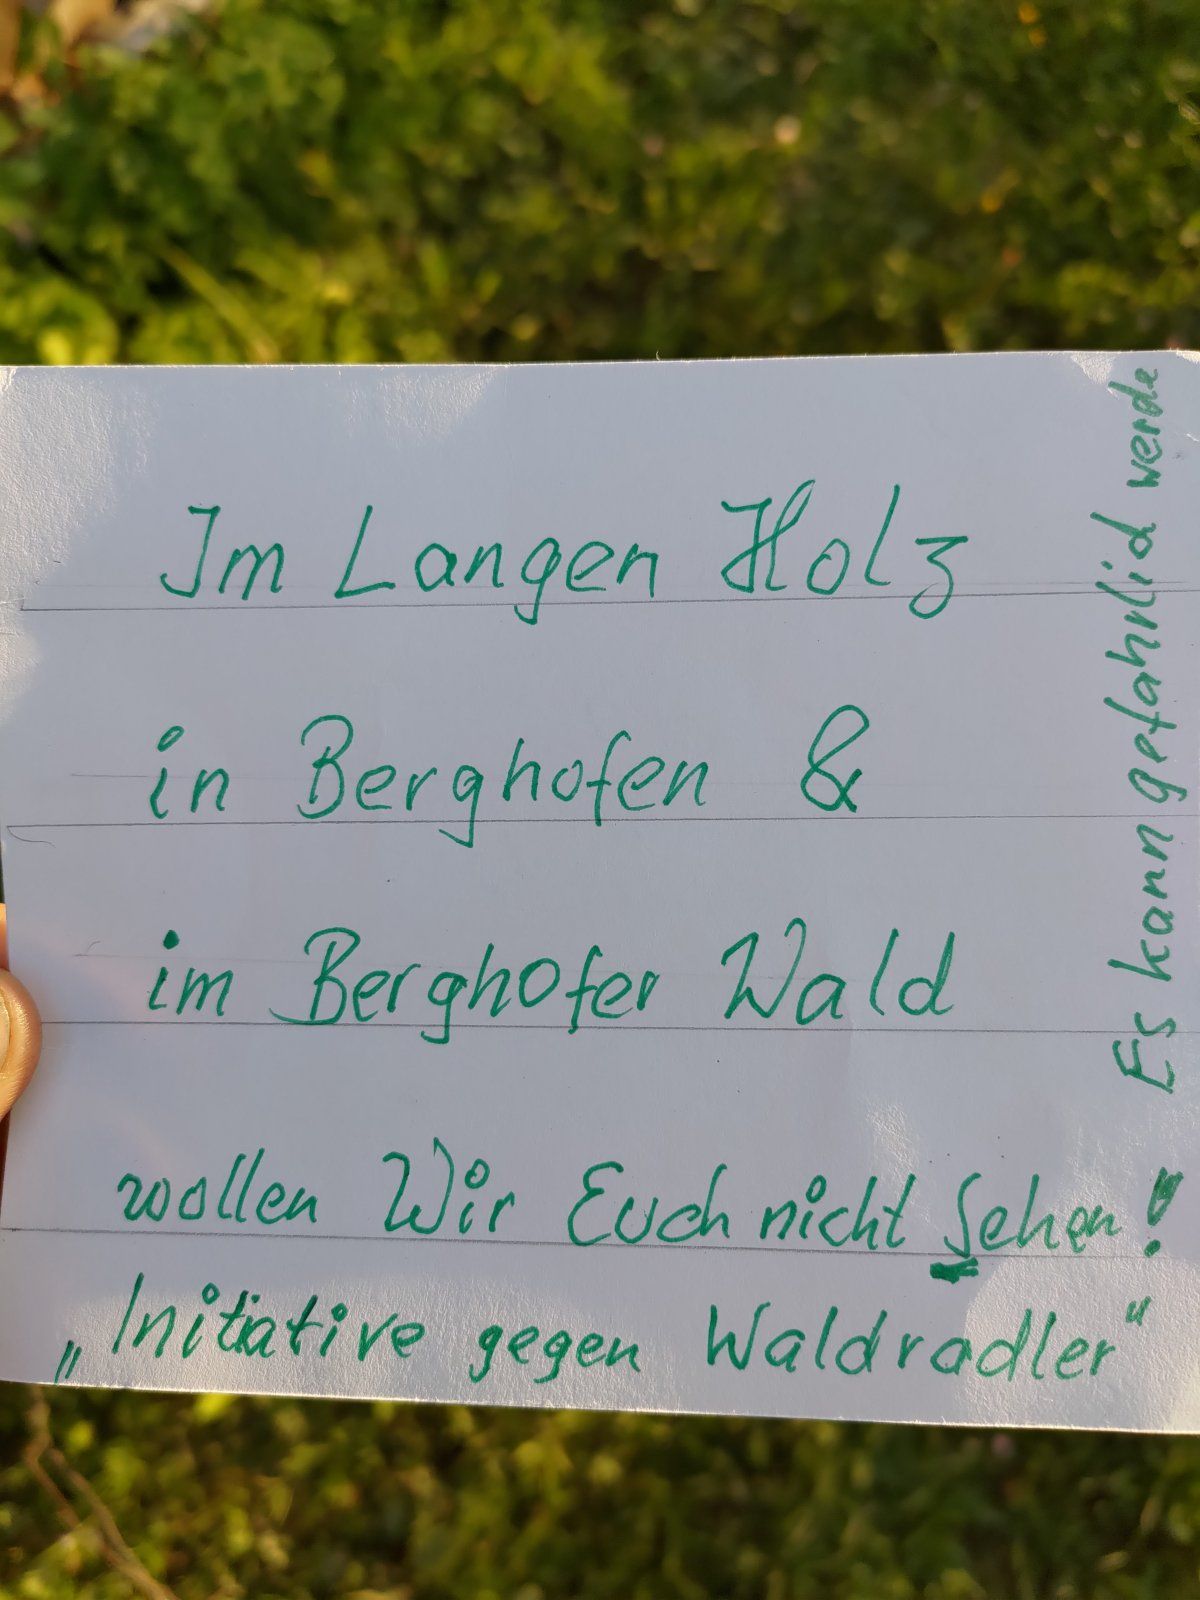 Im Langen Holz
in Berghofen &
im Berghofer Wald
wollen Wir Euch nicht sehen!
„Initiative gegen Waldradler“
Es kann gefahrlich werde